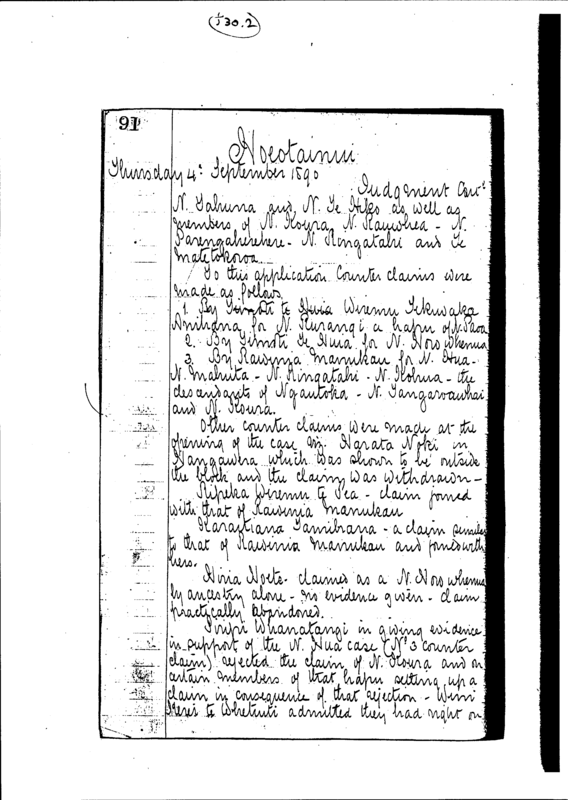 J30.2
91
Hoeotainui
Thursday 4th September 1890
Judgment Cont
N. Tahuna and N. Te Hiko as well as
members of N. Koura N. Kauwhea - N.
Parengaherehere - N. Ringatahi and Te
Matetokoroa
To this application Counter claims were
made as follows
1. By Wiremu Tekuwaka
for N. Kurangi a hapu of N. Paoa
2. By Timoti Te Huia for N. Horowhenua
3. By Rawinia Manukau for N. Hua -
N. Mahuta - N. Ringatahi - N. Kohua - the
descendants of Ngautoka - N. Tangaroawhai
and N. Koura.
Other counter claims were made at the
opening of the case by Harata Noki in
Hangawera which was shown to be outside
the block and the claim was withdrawn -
Ripeka Wiremu te Pea - claim joined
with that of Rawinia Manukau
Karaitiana - a claim similar
to that of Rawinia Manukau and joined with
hers.
Hiria Hoete - claimed as a N. Horowhenua
by ancestry alone - no evidence given - claim
practically abandoned.
Piripi Whanatangi in giving evidence
in support of the N. Hua case (No 3 counter
claim) rejected the claim of N. Koura and on
certain members of that hapu setting up a
claim in consequence of that rejection - Wini
Kerei te Whetuiti admitted they had right on